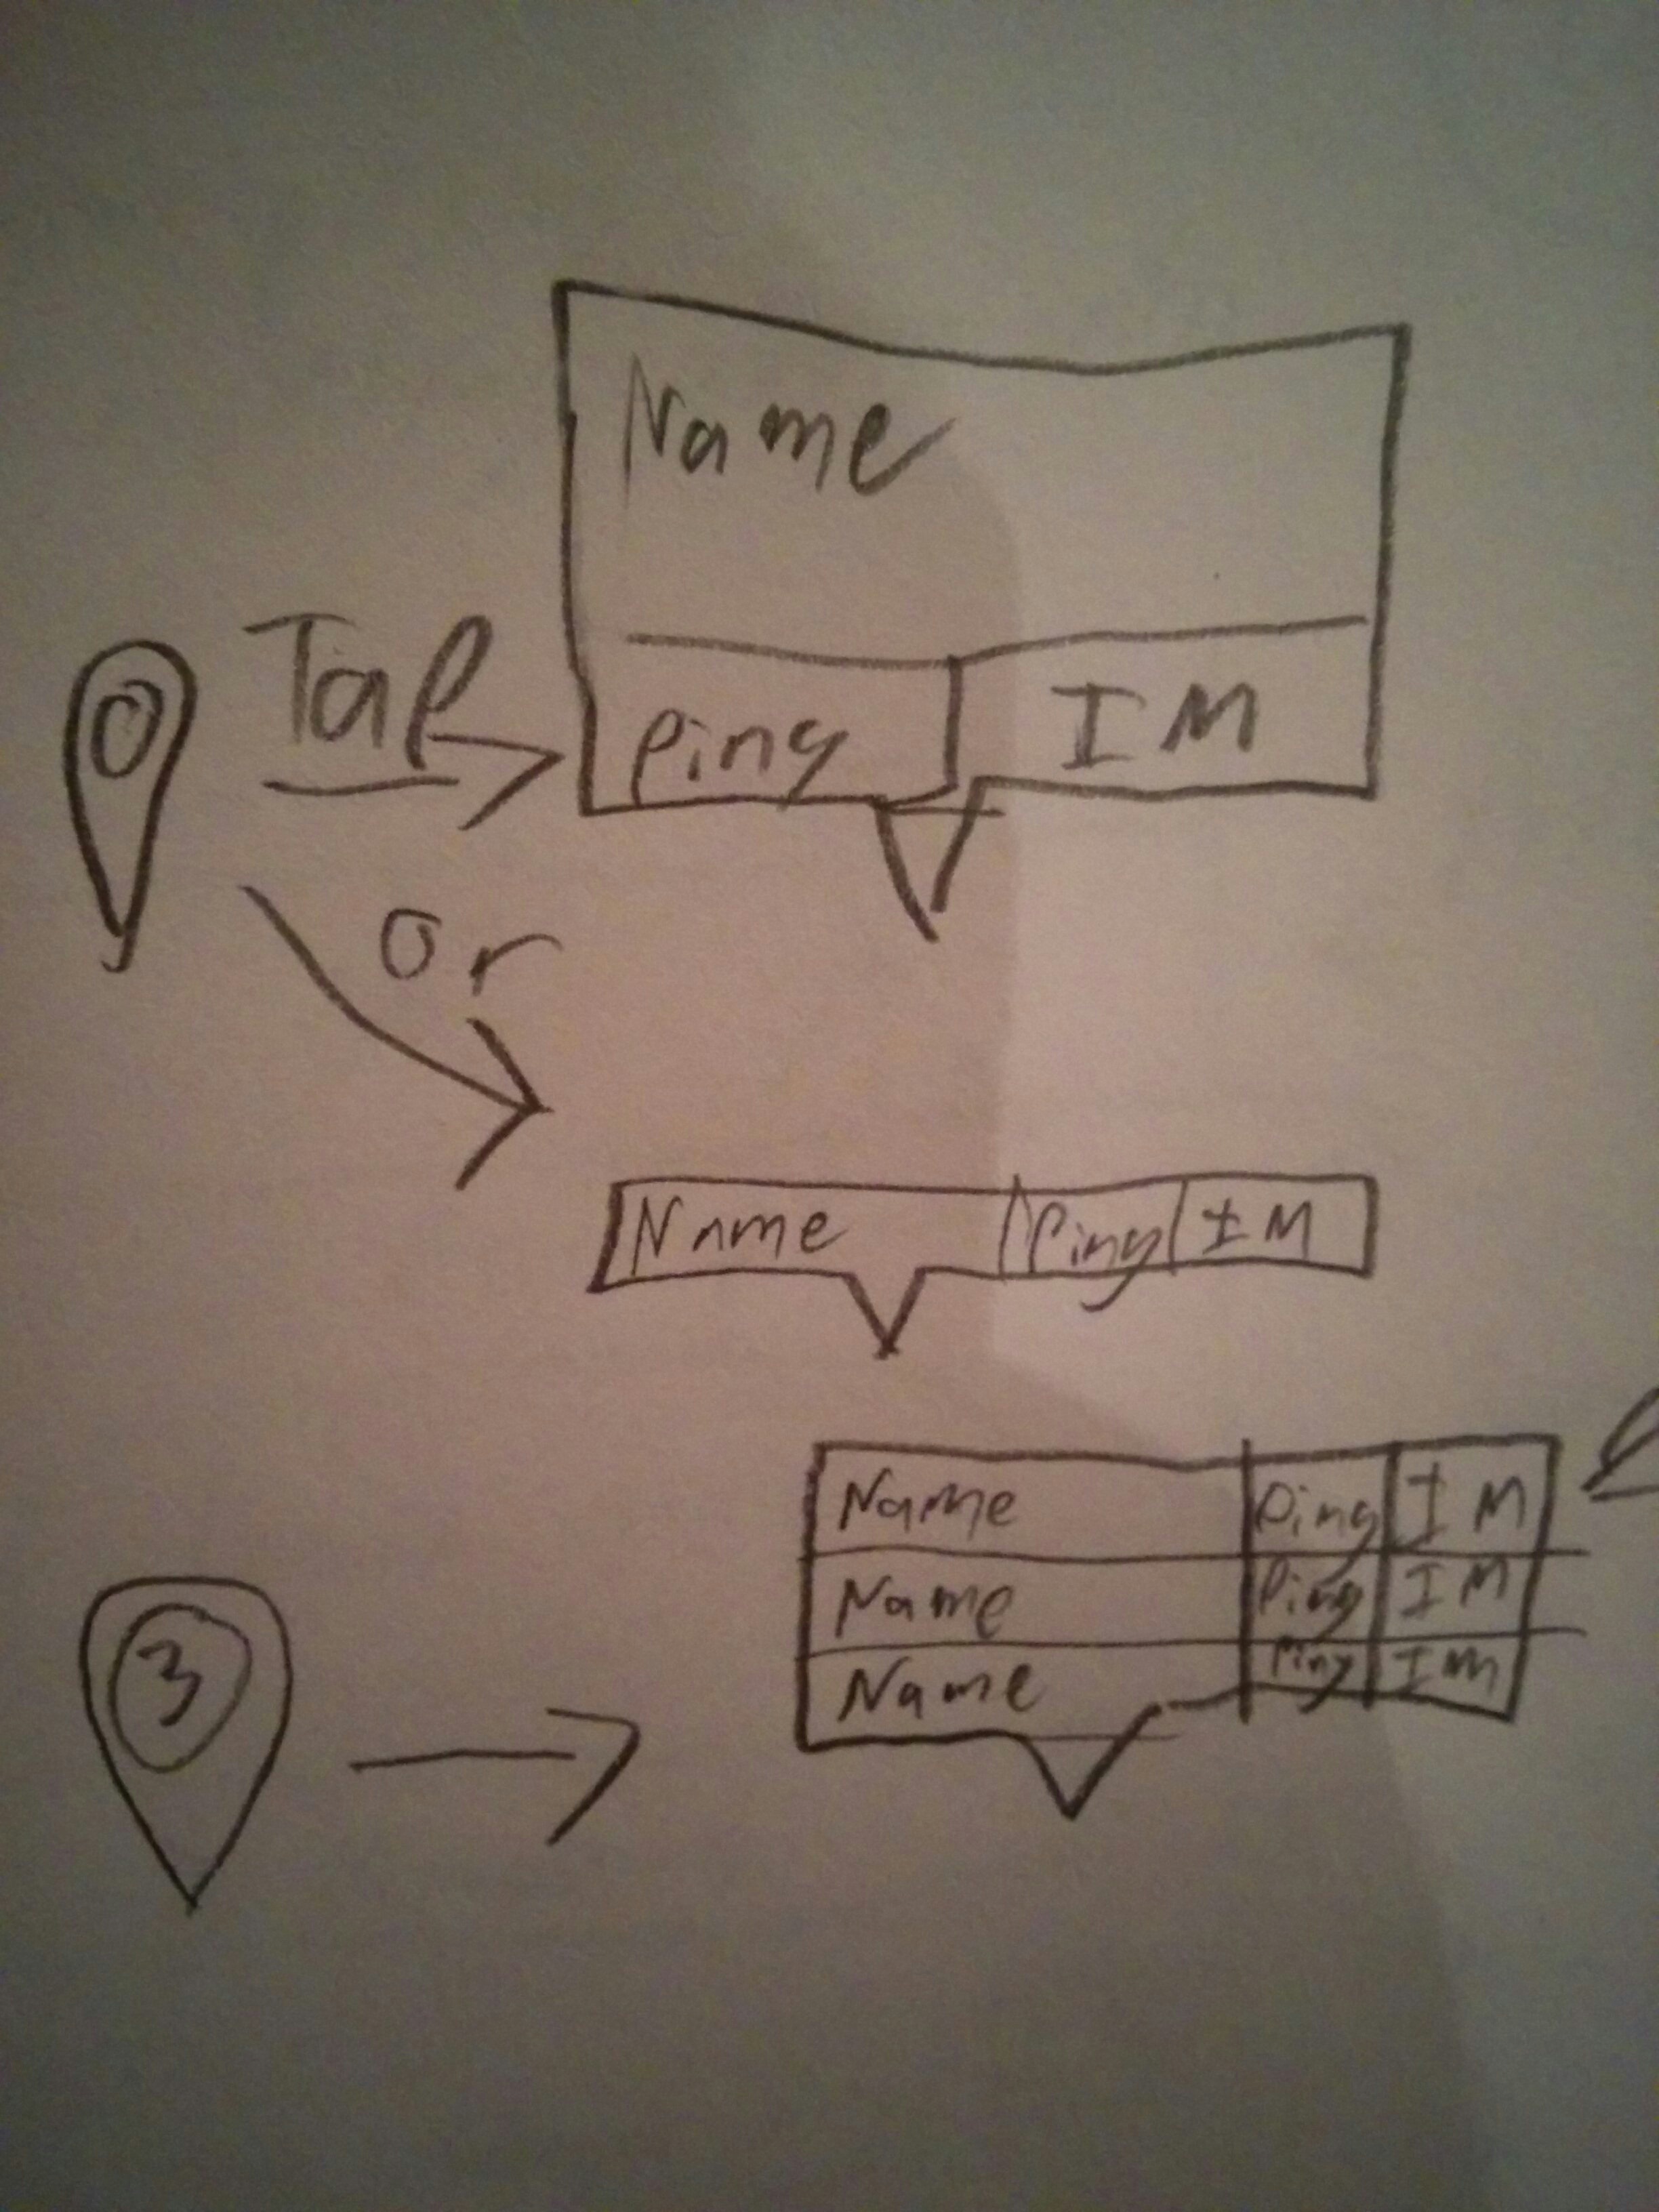 Name
Tap
Ping IM
or
Name Ping IM
Name Ping IM
Name Ping IM
Name Ping IM
3